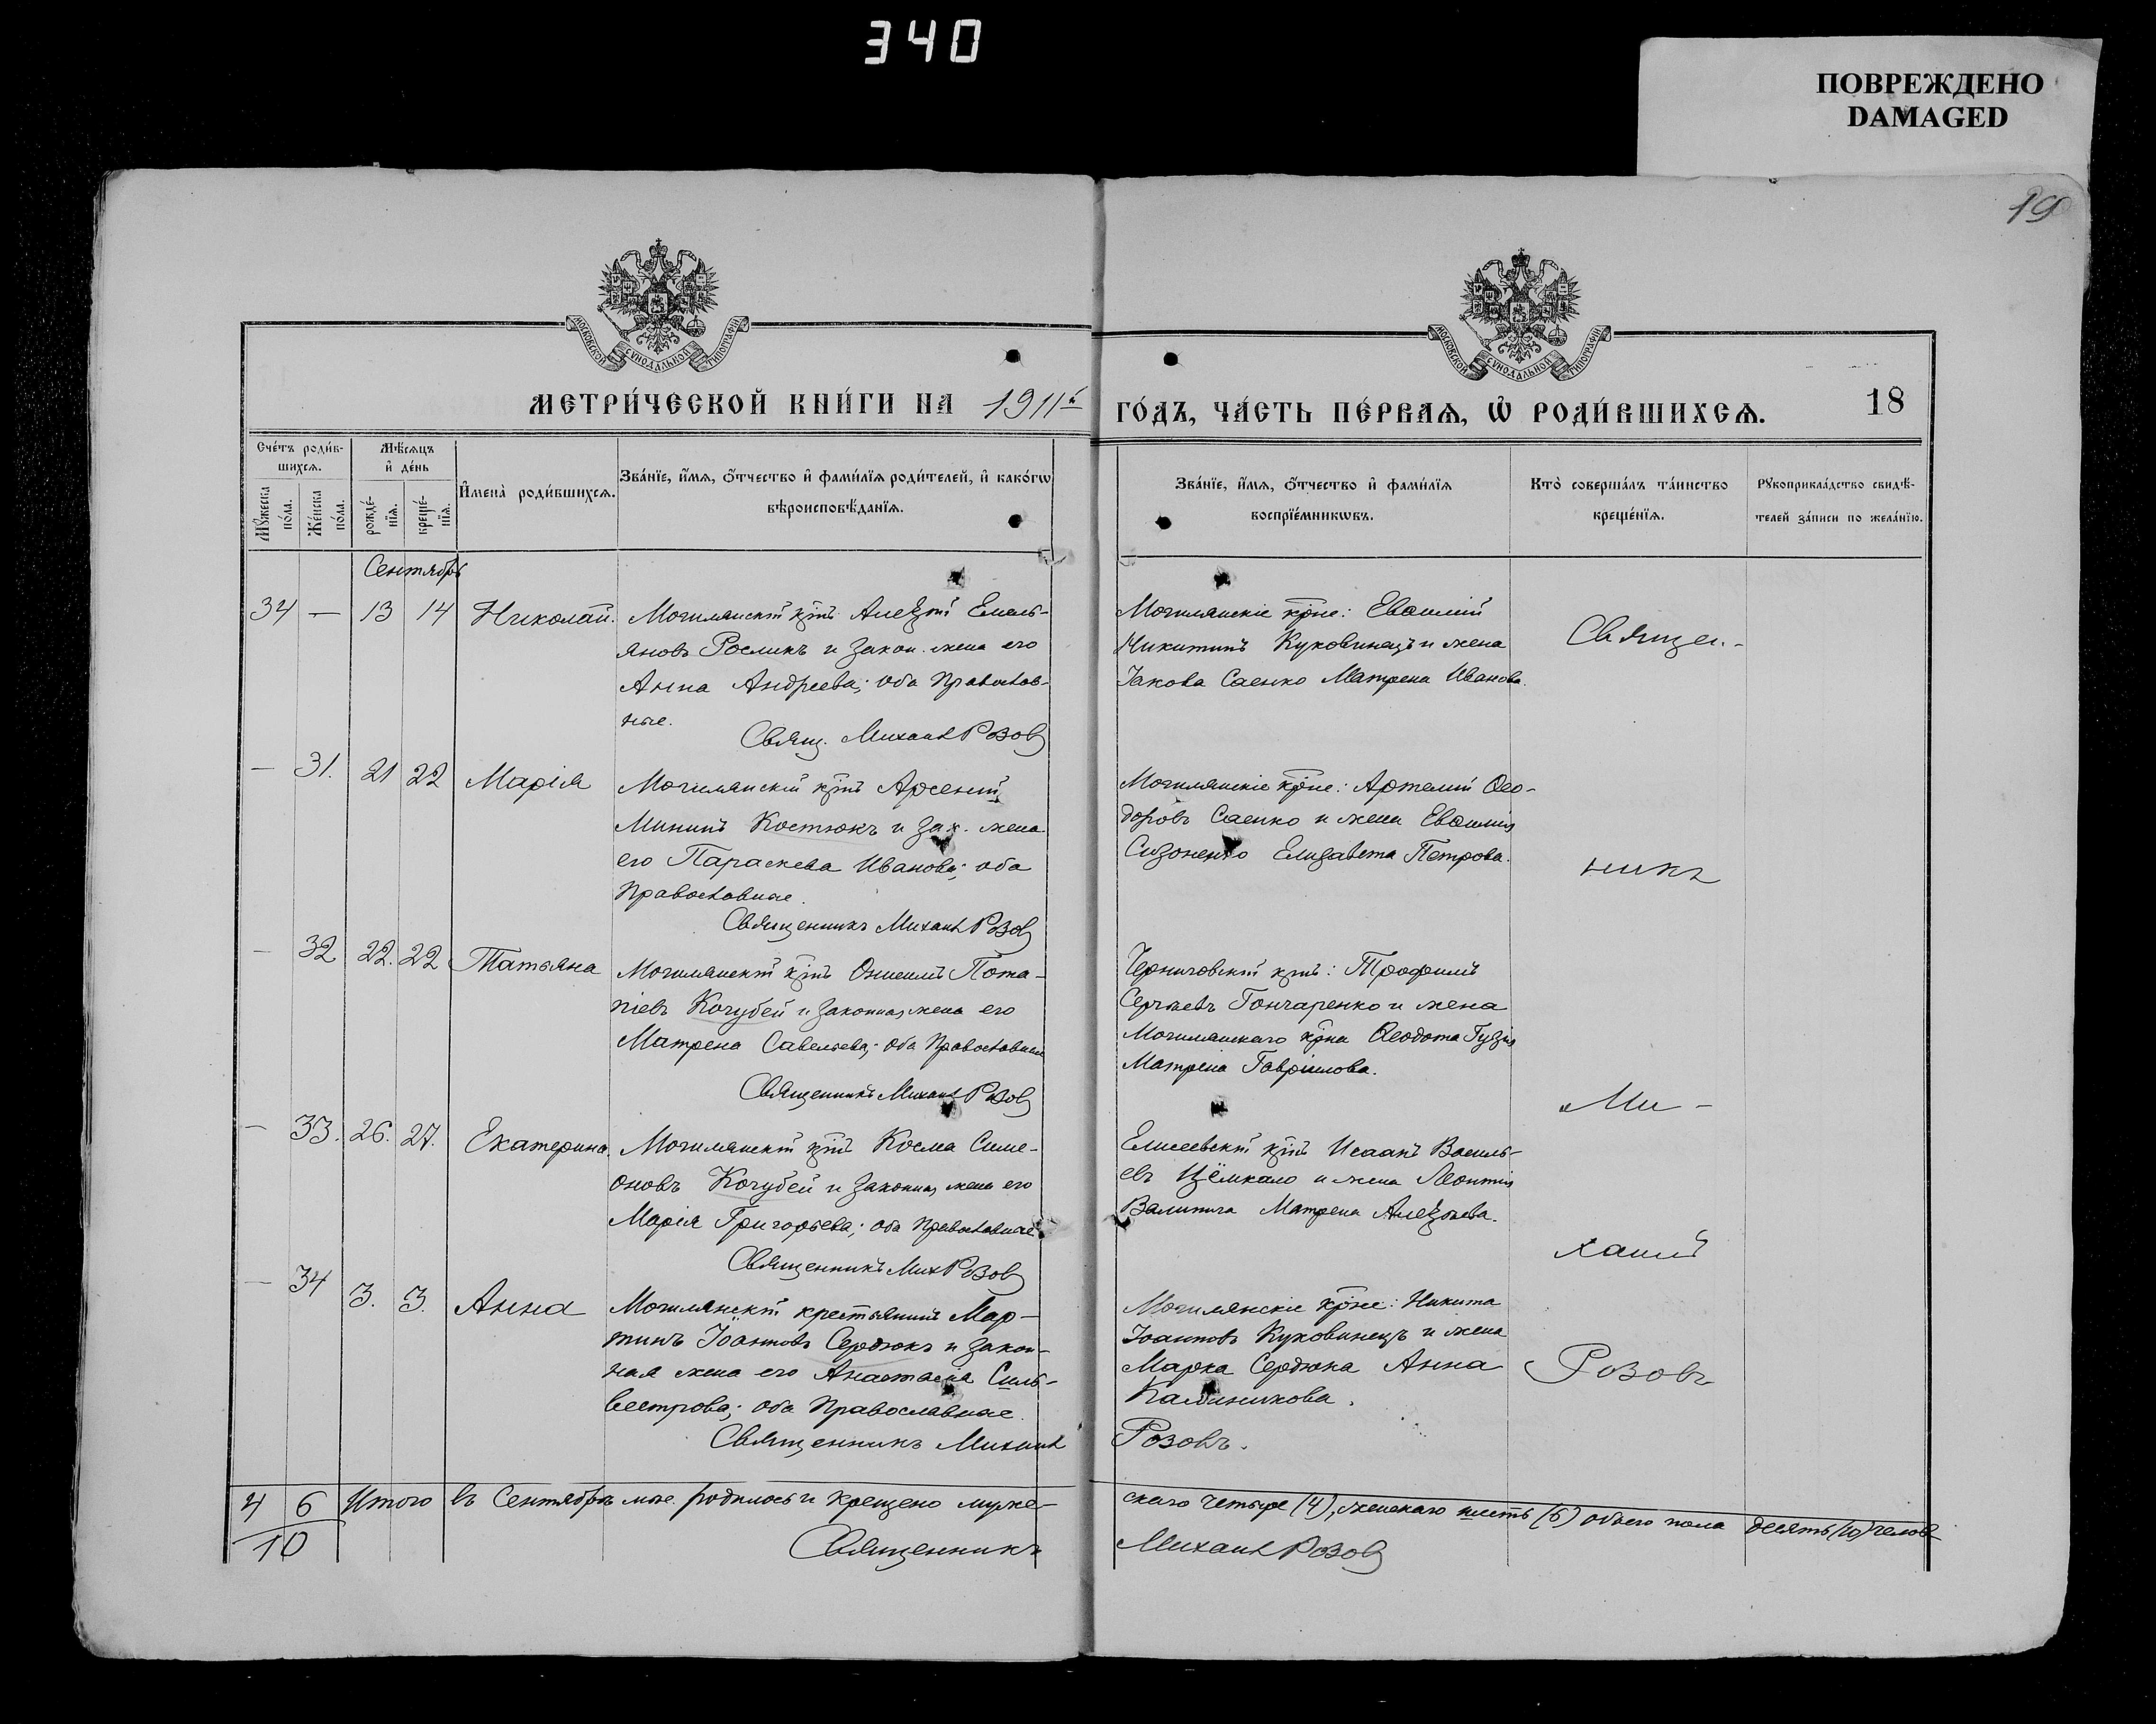 340
ПОВРЕЖДЕНО
DAMAGED
19
МОСКОВСКОЙ СѴНОДАЛЬНОЙ ТИПОГРАФІИ
МОСКОВСКОЙ СѴНОДАЛЬНОЙ ТИПОГРАФІИ
МЕТРИ́ЧЕСКОЙ КНИ́ГИ НА 1911й
ГО́ДЪ, ЧА́СТЬ ПЕ́РВАѦ, Ѡ҆ РОДИ́ВШИХСѦ.
18
Сче́тъ роди́в-
шихсѧ.
Мѣ́сѧцъ
и҆ де́нь
Мꙋ́жеска
по́ла.
Же́нска
по́ла.
рожде́-
нїѧ.
креще́-
нїѧ.
И҆мена̀ роди́вшихсѧ.
Зва́нїе, и҆́мѧ, ѻ҆́тчество и҆ фами́лїѧ роди́телей, и҆ како́гѡ
вѣроисповѣ́данїѧ.
Зва́нїе, и҆́мѧ, ѻ҆́тчество и҆ фами́лїѧ
воспрїе́мникѡвъ.
Кто̀ соверша́лъ та́инство
креще́нїѧ.
Рꙋкоприкла́дство свидѣ́-
телей за́писи по жела́нїю.
Сентябрь
34 — 13 14 Николай. Могилянскій кр̃нъ Алекѯій Емель-
яновъ Рослик и Закон. жена его
Анна Андреева; оба Православ-
ные.
Свящ. Михаил Розов
Могилянскіе кр̃не: Евѳимій
Никитинъ Куковинецъ и жена
Іакова Саенко Матрена Иванова.
Священ-
— 31. 21 22 Марія Могилянскій кр̃нъ Арсеній
Мининъ Костюкъ и Зак. жена
его Параскева Иванова; оба
Православные.
Священникъ Михаил Розов
Могилянскіе кр̃не: Артемий Ѳео-
доровъ Саенко и жена Евѳимія
Сизоненко Елизавета Петрова.
никъ
— 32 22. 22 Татьяна Могилянскій кр̃нъ Онисимъ Пота-
піевъ Кочубей и Законная жена его
Матрена Савельева; оба Православные
Священникъ Михаил Розов
Черниговскій кр̃нъ: Трофимъ
Сергѣевъ Гончаренко и жена
Могилянскаго кр̃на Ѳеодота Гузія
Матрена Гавріилова.
Ми-
— 33. 26. 27. Екатерина. Могилянскій кр̃нъ Косма Симе-
оновъ Кочубей и Законная жена его
Марія Григорьева; оба Православные
Священникъ Мих Розов
Елисеевскій кр̃нъ Исаакъ Василь-
евъ Цёмкало и жена Леонтія
Валинича Матрена Алекѯѣева.
хаилъ
— 34 3. 3. Анна Могилянскій крестьянинъ Мар-
тинъ Іоанновъ Сердюкъ и Закон-
ная жена его Анастасіа Силь-
вестрова; оба Православные.
Священникъ Михаил
Розовъ.
Могилянскіе кр̃не: Никита
Іоанновъ Куковинецъ и жена
Марка Сердюка Анна
Каллиникова.
Розовъ
4 6 Итого въ Сентябрѣ м-цѣ. родилось и крещено муже-
скаго четыре (4), женскаго шесть (6) обоего пола десять (10) челов
10
Священникъ
Михаил Розов